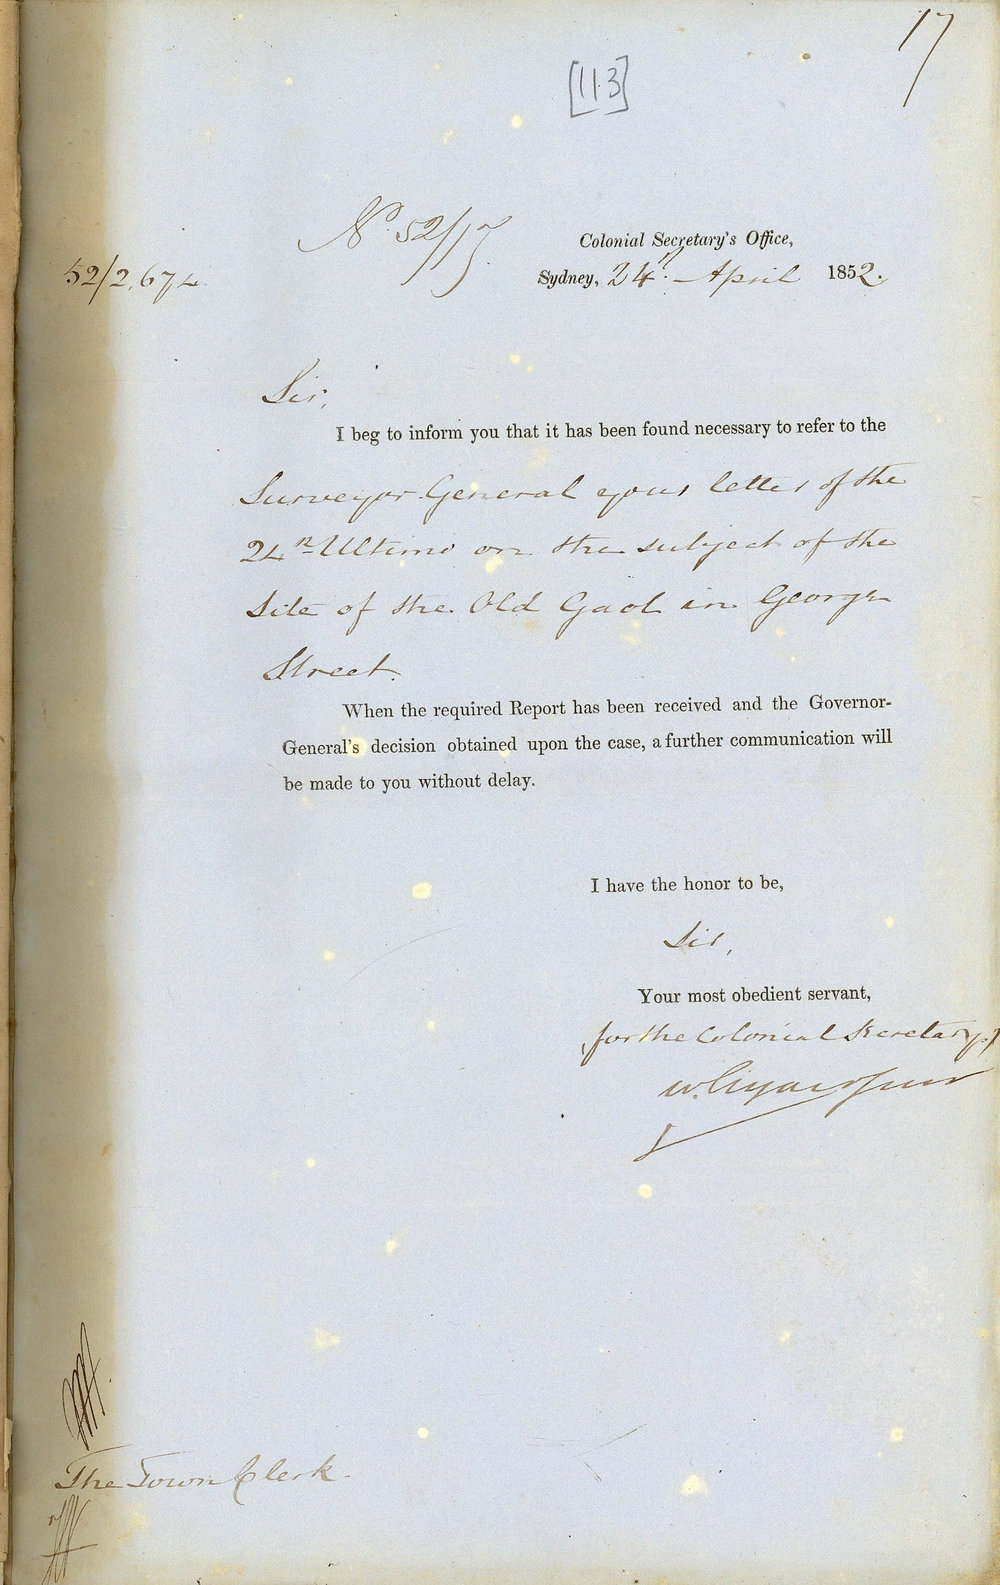 17
[113]
No. 52/17
Colonial Secretary's Office,
52/2,674
Sydney, 24th. April 1852.
Sir,
I beg to inform you that it has been found necessary to refer to the
Surveyor General your letter of the
24th Ultimo on the subject of the
Site of the Old Gaol in George
Street.
When the required Report has been received and the Governor-
General's decision obtained upon the case, a further communication will
be made to you without delay.
I have the honor to be,
Sir,
Your most obedient servant,
(for the Colonial Secretary)
W. Elyard Junr
The Town Clerk.